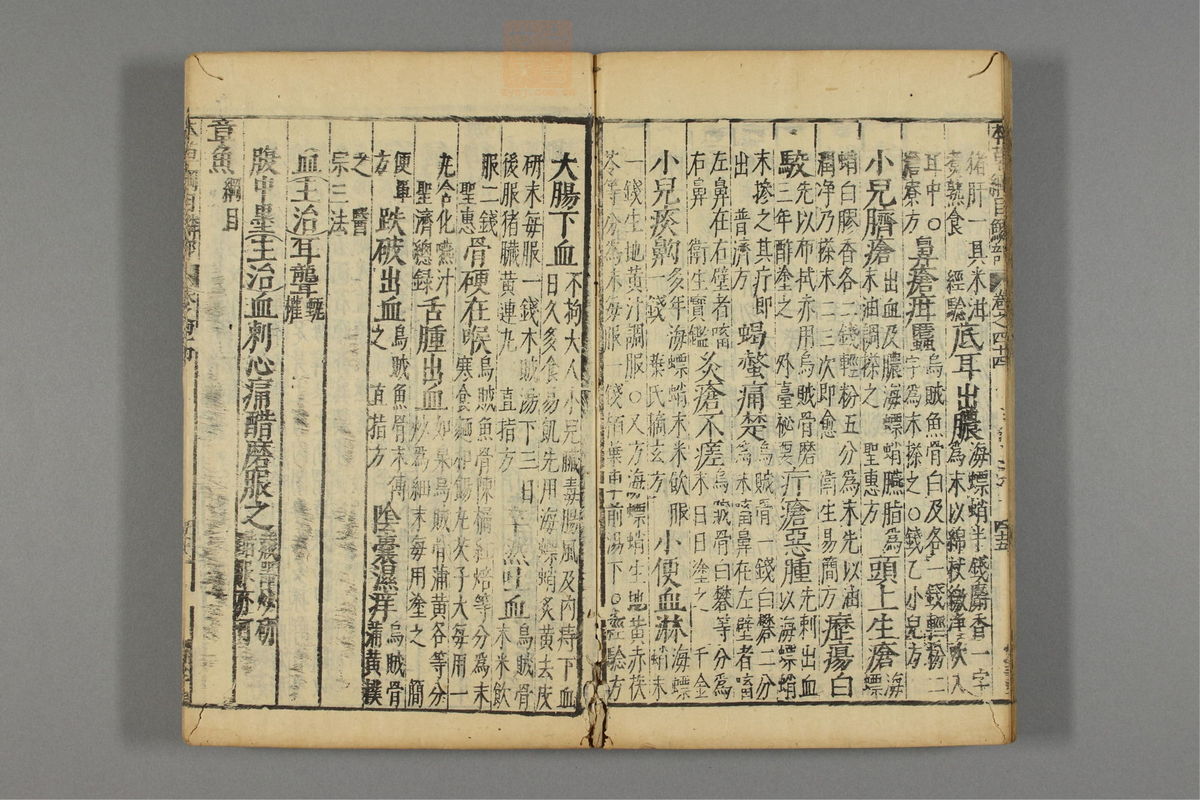 本草綱目鱗部 卷之四十四 四十五
猪肝一具米泔
煮熟食 經驗
底耳出膿
海螵蛸半錢麝香一字
爲末以綿杖繳淨吹入
耳中○
澹寮方
鼻瘡疳䘌
烏賊魚骨白及各一錢輕粉二
字爲末搽之○錢乙小兒方
小兒臍瘡
出血及膿海螵蛸臙脂爲
末油調搽之 聖惠方
頭上生瘡
海螵
蛸白膠香各二錢輕粉五分爲末先以油
潤净乃搽末二三次即愈 衛生易簡方
癧瘍白
駮
先以布拭赤用烏賊骨磨
三年酢塗之 外臺秘要
疔瘡惡腫
先刺出血
以海螵蛸
末摻之其疔即
出 普濟方
蝎螫痛楚
烏賊骨一錢白礬二分
爲末㗜鼻在左壁者㗜
左鼻在右壁者㗜
右鼻 衛生寶鑑
灸瘡不瘥
烏賊骨白礬等分爲
末日日塗之 千金
小兒痰齁
多年海螵蛸末米飲服
一錢 葉氏摘玄方
小便血淋
海螵
蛸末
一錢生地黄汁調服○又方海螵蛸生地黄赤茯
苓等分爲末每服一錢柏葉車前湯下○經驗方
大腸下血
不拘大人小兒臟毒腸風及内痔下血
日久多食易飢先用海螵蛸炙黄去皮
研末每服一錢木賊湯下三日
後服猪臟黄連丸 直指方
卒然吐血
烏賊骨
末米飲
服二錢
聖惠
骨硬在喉
烏賊魚骨陳橘紅焙等分爲末
寒食麵和餳丸芡子大每用一
丸含化嚥汁
聖濟總録
舌腫出血
如泉烏賊骨蒲黄各等分
炒爲細末每用塗之 簡
便單
方
跌破出血
烏賊魚骨末傅
之 直指方
陰囊濕痒
烏賊骨
蒲黄撲
之 醫
宗三法
血 主治耳聾 甄權
腹中墨 主治血刺心痛醋磨服之
章魚 綱目